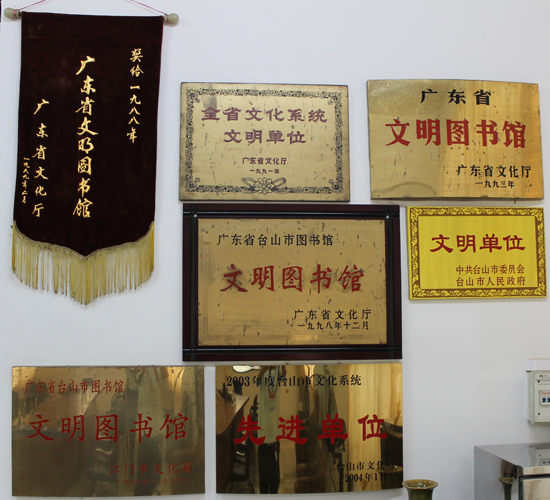 奖给一九八八年
广东省文明图书馆
广东省文化厅
全省文化系统
文明单位
广东省文化厅
一九九一年
广东省
文明图书馆
广东省文化厅
一九九三年
广东省台山市图书馆
文明图书馆
广东省文化厅
一九九八年十二月
文明单位
中共台山市委员会
台山市人民政府
广东省台山市图书馆
文明图书馆
江门市文化局
2003年度台山市文化系统
先进单位
台山市文化
2004年1月